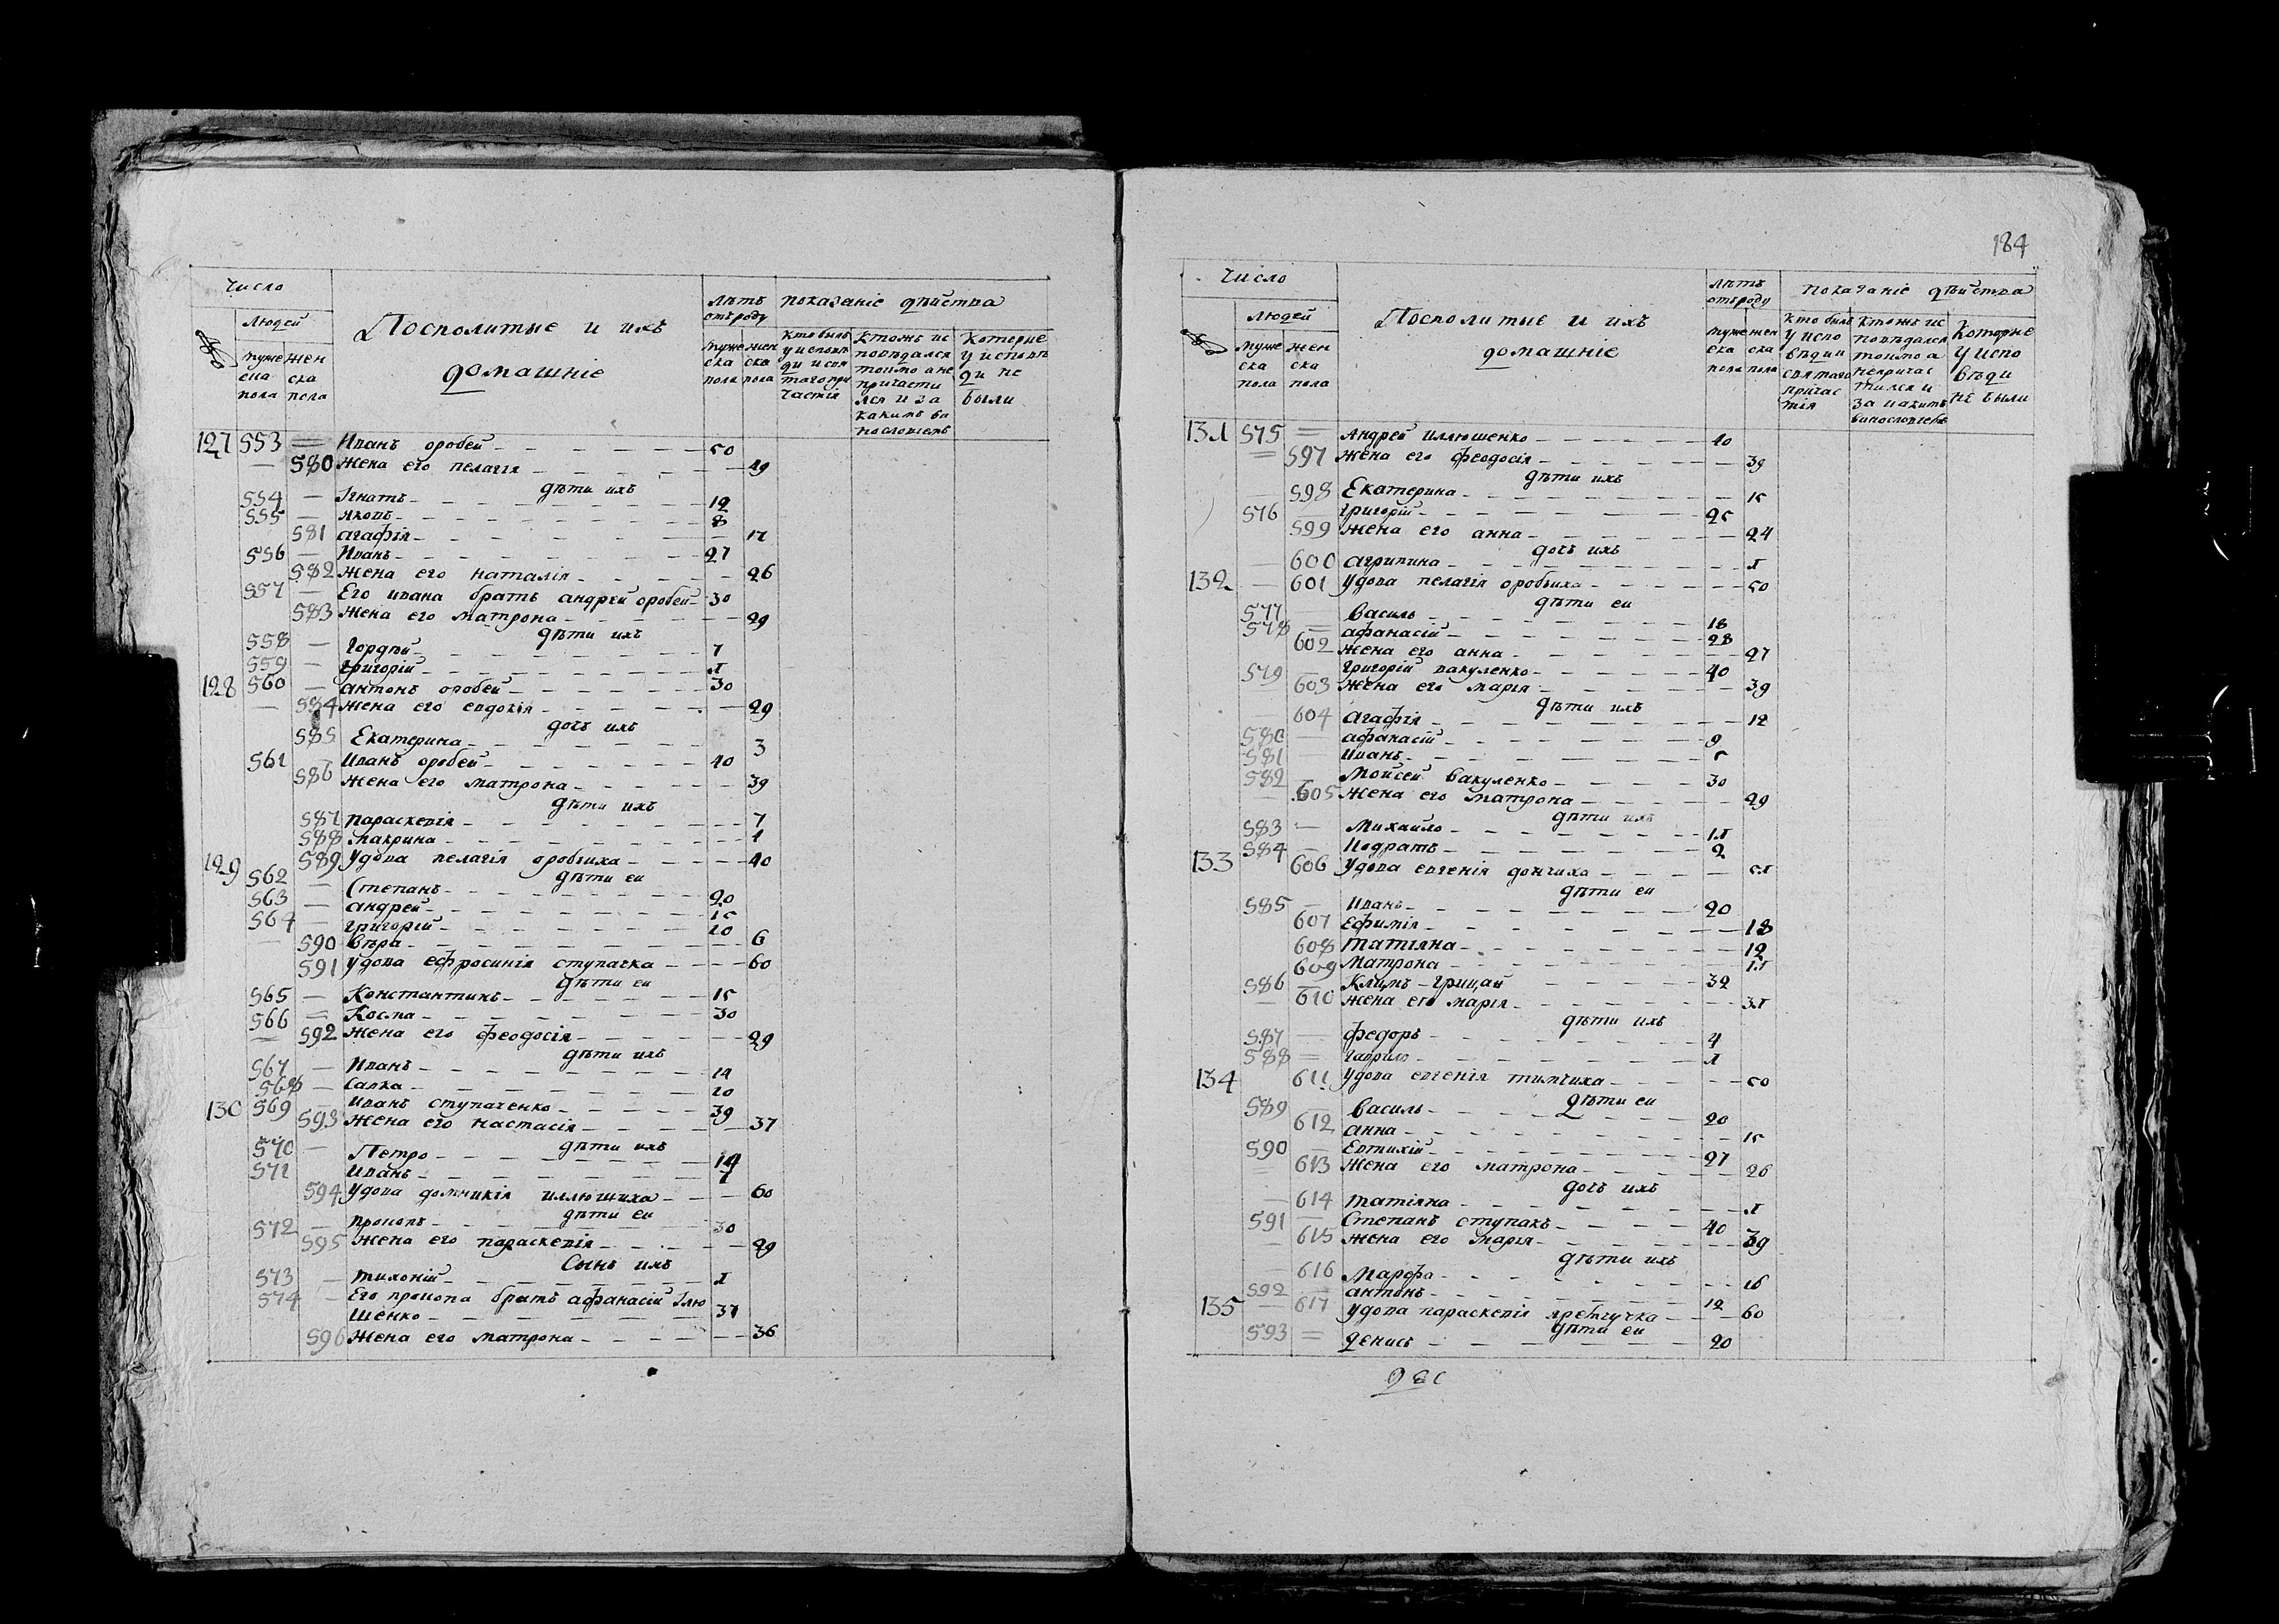 Число
Людей
Посполитые и ихъ
домашніе
Лѣтъ
отъ роду
показаніе дѣйства
муже
ска
пола
жен
ска
пола
муже
ска
пола
жен
ска
пола
кто былъ
у исповѣ
ди и свя
таго при
частія
ктожъ ис
повѣдался
токмо а не
причасти
лся и за
какимъ ви
нословіемъ
Которые
у исповѣ
ди не
были
127 553 Иванъ оробей 50
580 Жена его пелагія 49
дѣти ихъ
554 Ігнатъ 12
555 яковъ 8
581 агафія 17
556 Иванъ 27
582 Жена его наталія 26
557 Его ивана братъ андрей оробей 30
583 Жена его матрона 29
дѣти ихъ
558 Гордѣй 7
559 григорій 1
560 128 антонъ оробей 30
584 Жена его евдокія 29
дочь ихъ
585 Екатерина 3
561 Иванъ оробей 40
586 Жена его матрона 39
дѣти ихъ
587 параскевія 7
588 макрина 1
129 589 Удова пелагія оробчиха 40
дѣти еи
562 Степанъ 20
563 андрей 15
564 григорій 10
590 Вѣра 6
591 Удова ефросинія ступачка 60
дѣти еи
565 Константинъ 15
566 Косма 30
592 Жена его феодосія 29
дѣти ихъ
567 Иванъ 14
568 Савка 10
130 569 Иванъ ступаченко 39
593 Жена его настасія 37
дѣти ихъ
570 Петро 14
571 Иванъ 7
594 Удова домникія иллюшиха 60
дѣти еи
572 прокопъ 30
595 Жена его параскевія 29
Сынъ ихъ
573 тихоній 1
574 Его прокопа братъ афанасій Ілю
шенко 37
596 Жена его матрона 36
184
Число
Людей
Посполитые и ихъ
домашніе
Лѣтъ
отъ роду
показаніе дѣйства
муже
ска
пола
жен
ска
пола
муже
ска
пола
жен
ска
пола
кто былъ
у испо
вѣди и
святаго
причас
тія
ктожъ ис
повѣдался
токмо а
непричас
тился и
за какимъ
винословіемъ
Которые
у испо
вѣди
не были
131 575 Андрей иллюшенко 40
597 Жена его феодосія 39
дѣти ихъ
598 Екатерина 15
576 григорій 25
599 Жена его анна 24
дочь ихъ
600 агрипина 1
132 601 Удова пелагія оробчиха 50
дѣти еи
577 Василь 18
578 афанасій 28
602 Жена его анна 27
579 григорій вакуленко 40
603 Жена его марія 39
дѣти ихъ
604 агафія 12
580 афанасій 9
581 Иванъ 5
582 Мойсей вакуленко 30
605 Жена его матрона 29
дѣти ихъ
583 Михайло 11
584 Кодратъ 2
133 606 Удова евгенія дончиха 51
дѣти еи
585 Иванъ 20
607 Ефимія 18
608 татіяна 12
609 Матрона 11
586 Климъ грицай 32
610 Жена его марія 31
дѣти ихъ
587 федоръ 4
588 гаврило 1
134 611 Удова евгенія тимчиха 50
дѣти еи
589 Василь 20
612 анна 15
590 Евтихій 27
613 Жена его матрона 26
дочь ихъ
614 татіяна 1
591 Степанъ ступакъ 40
615 Жена его марія 39
дѣти ихъ
616 Марфа 16
592 антонъ 12
135 617 Удова параскевія гречучка 60
дѣти еи
593 денисъ 20